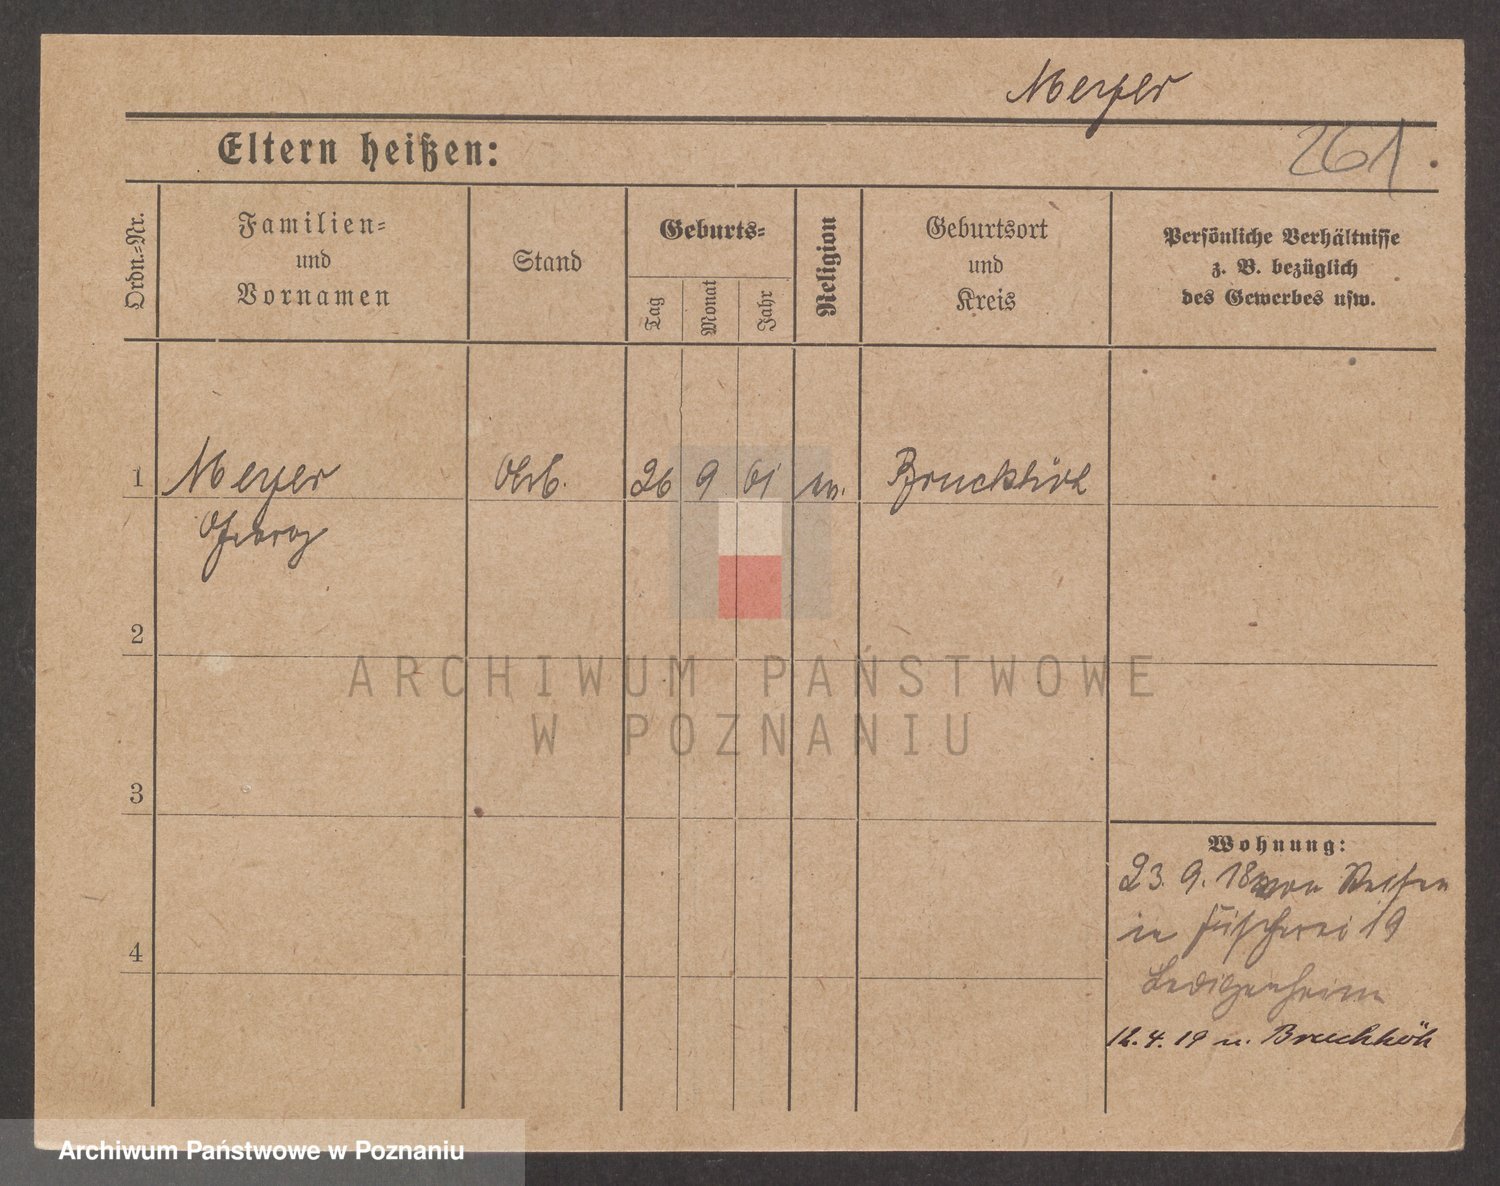 Meyer
Eltern heißen:
261
Ordn.-Nr.
Familien-
und
Vornamen
Stand
Geburts-
Tag
Monat
Jahr
Religion
Geburtsort
und
Kreis
Persönliche Verhältnisse
z. B. bezüglich
des Gewerbes usw.
1
Meyer
Georg
Arb.
26
9
01
Bruckhöh
2
3
4
ARCHIWUM PAŃSTWOWE
W POZNANIU
Wohnung:
23. 9. 18 von
in Fischerei 19
Ledigenheim
12. 4. 19 n. Bruchhöh
Archiwum Państwowe w Poznaniu